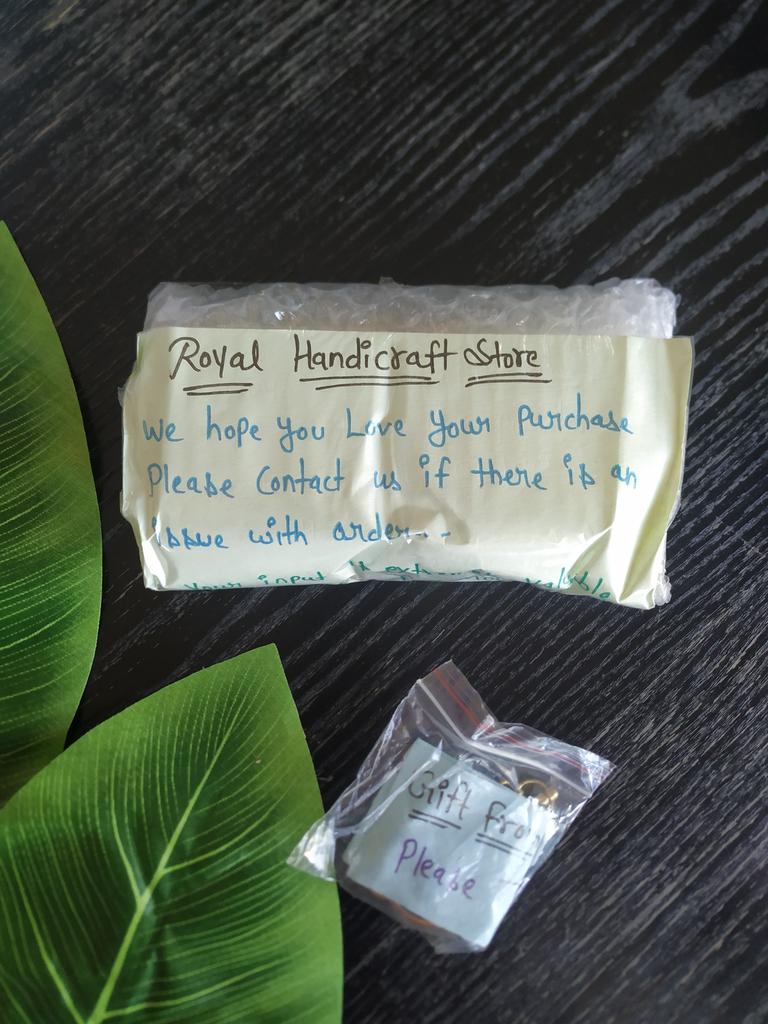 Royal Handicraft Store
We hope you Love your purchase
Please Contact us if there is an
issue with order...
Your input is valuable
Gift From
Please